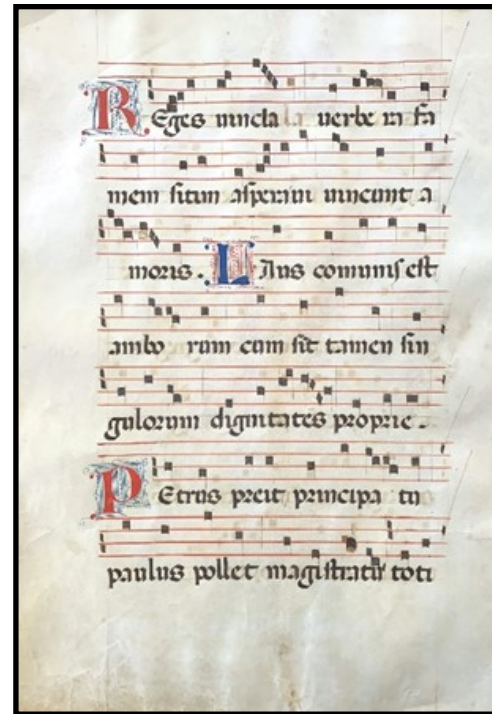 Reges vincla verbe ra fa
mem sitim asperam vincunt a
moris. Laus comunis est
ambo rum cum sit tamen sin
gulorum dignitates proprie.
Petrus preit principa tu
paulus pollet magistratu toti